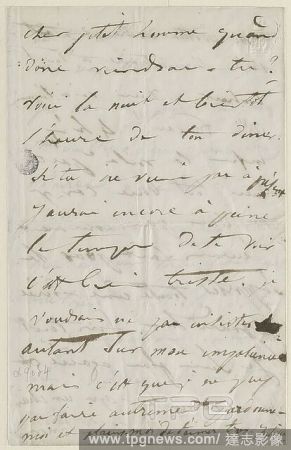 cher petit homme quand
donc viendras-tu ?
voici la nuit et bientôt
l'heure de ton dîner.
Si tu ne viens pas à
j'aurai encore à peine
le temps de te voir
c'est bien triste. je
voudrais ne pas
autant sur mon
mais c'est que je ne puis
pas faire autrement
moi et
www.tpgnews.com 達志影像